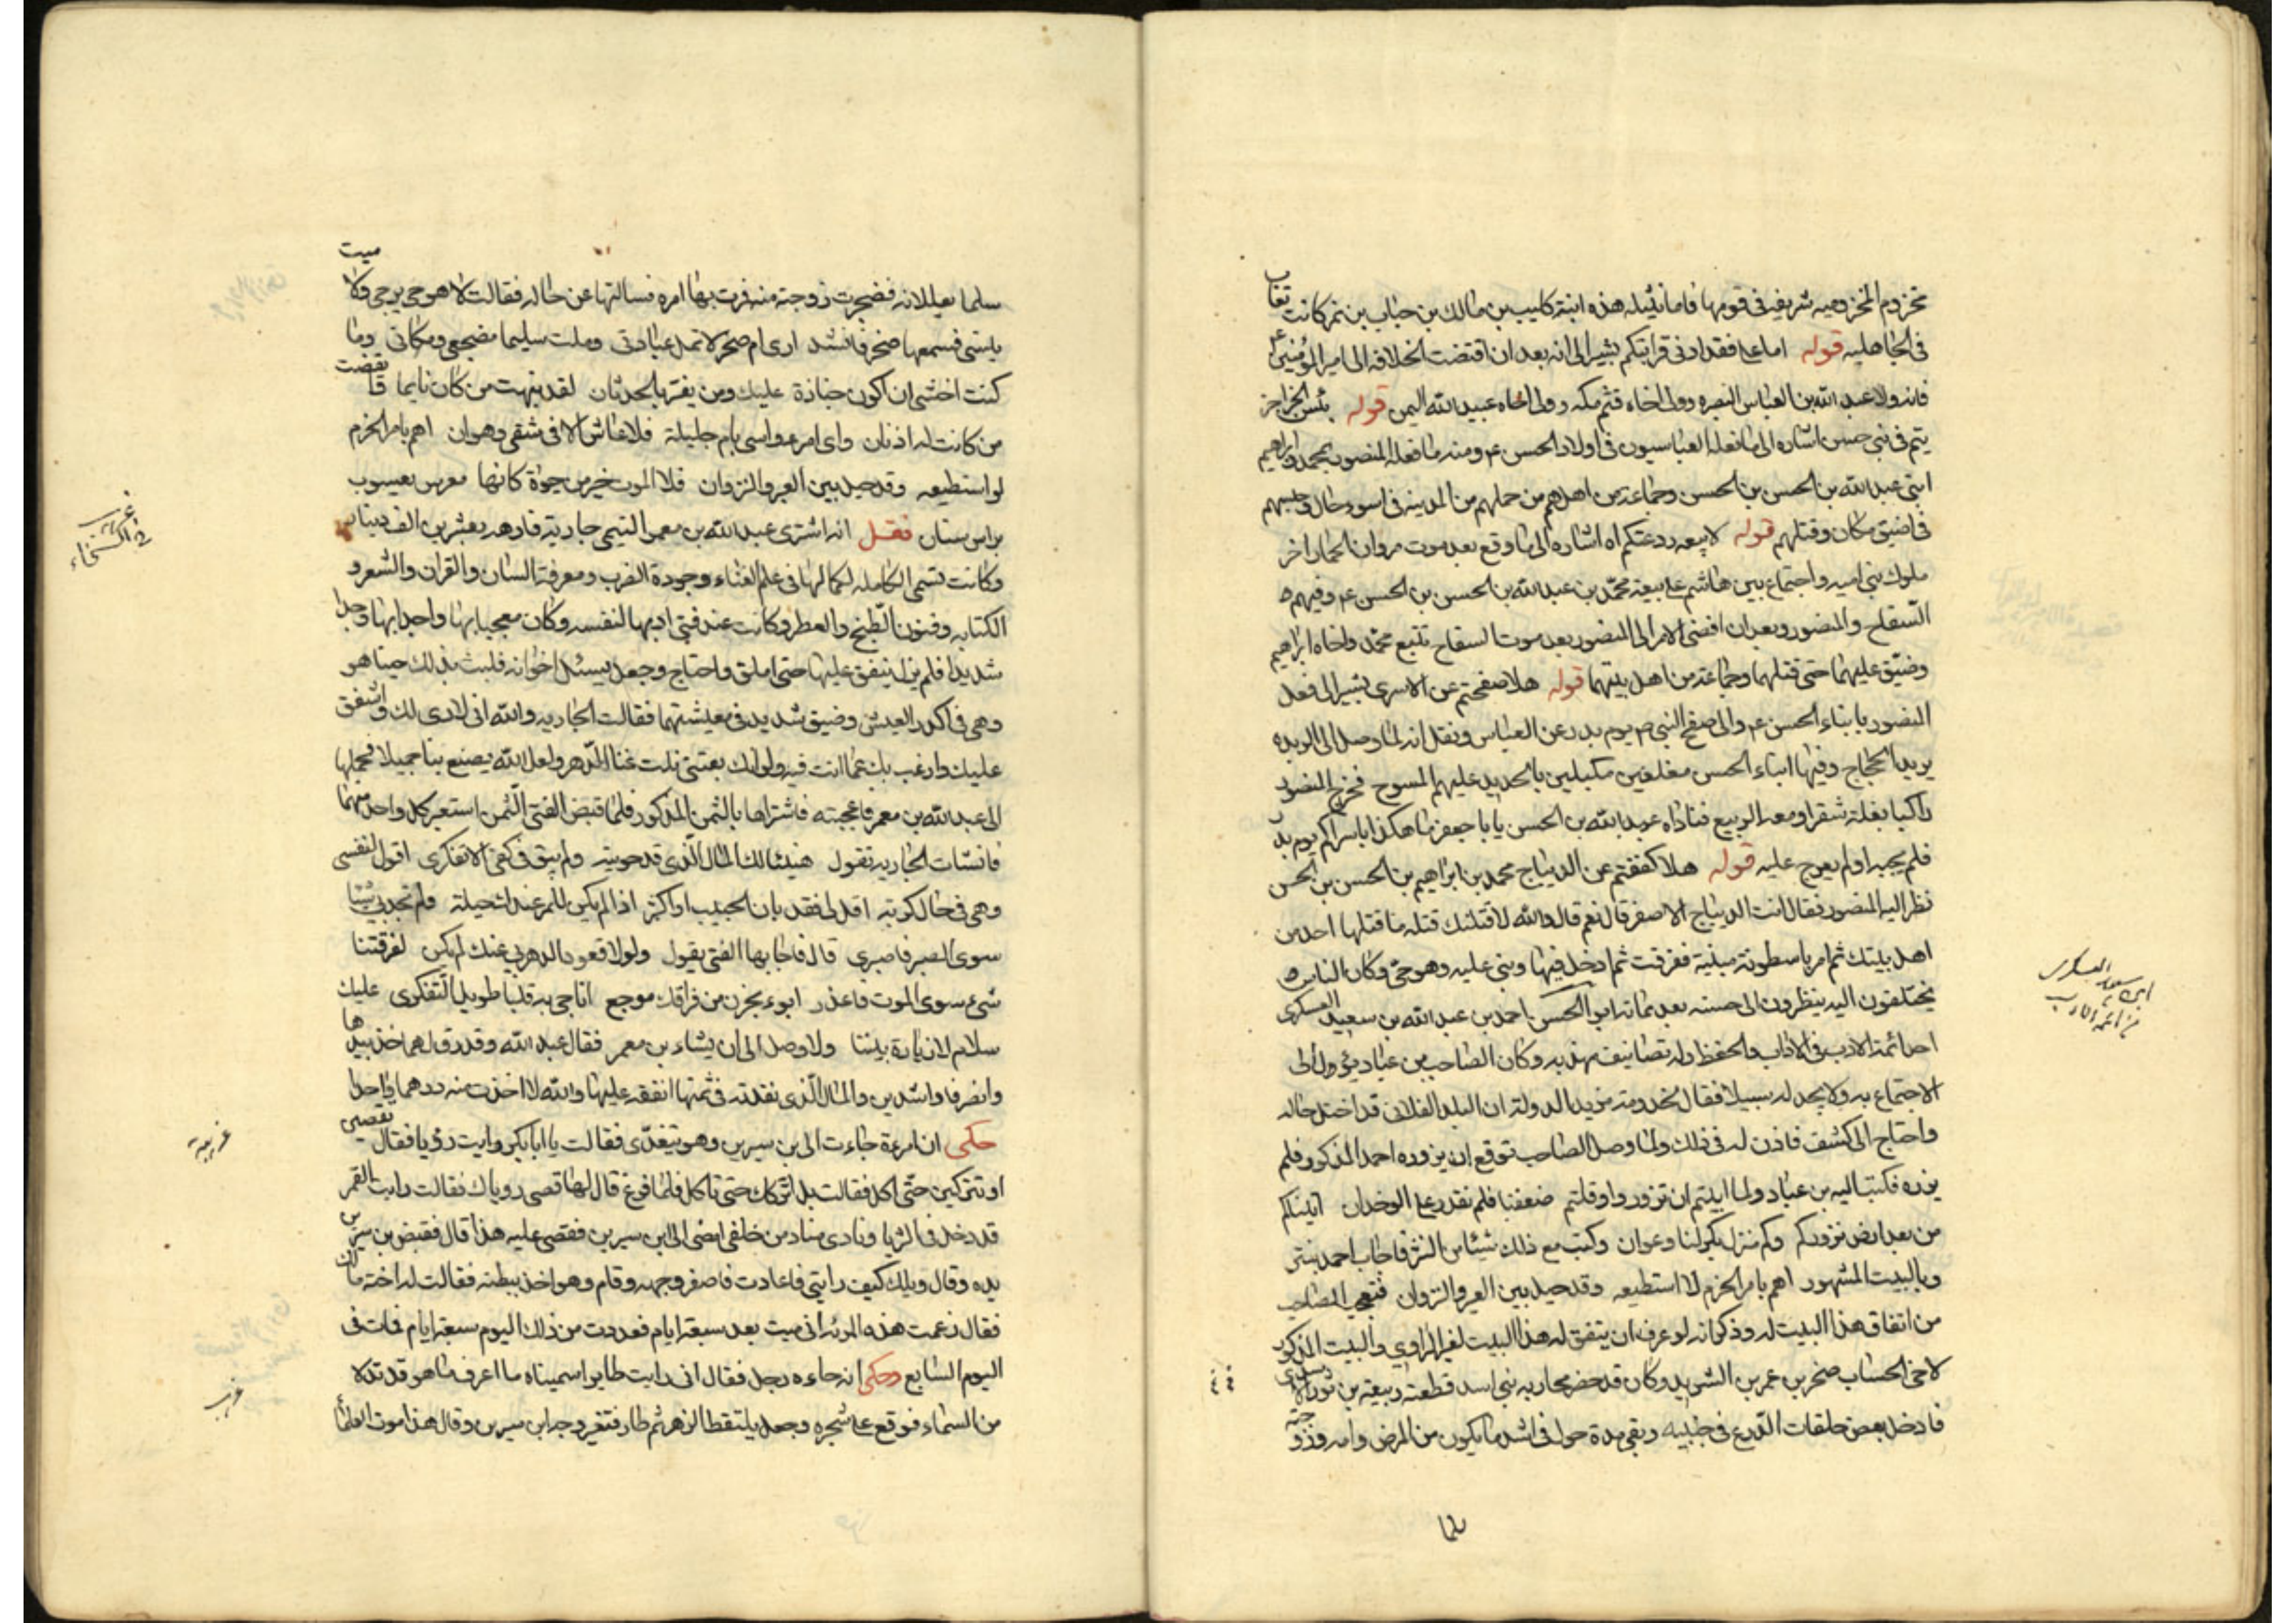 مخزوم المخزوميه شريفه في قومها فاما نثيله هذه ابنة كليب بن مالك بن حباب بن نمر كانت تعاب
في الجاهليه قوله اما علي فقد ادنى قرابتكم يشير الى انه بعد ان افتضت الخلافه الى امير المؤمنين ع
فانه ولا عبد الله بن العباس البصره وولى اخاه قثم مكه وولى اخاه عبيد الله اليمن قوله بئس الجزا جز
يتم في بني حسن اشاره الى ما فعله العباسيون في اولاد الحسن ع ومنه ما فعله المنصور بمحمد وابراهيم
ابني عبد الله بن الحسن بن الحسن وجماعة من اهلهم من حملهم من المدينه في اسوء حال وحبسهم
في اضيق مكان وقتلهم قوله لا بيعه ردعتكم اه اشاره الى ما وقع بعد موت مروان الحمار اخر
ملوك بني اميه واجتماع بين هاشم على بيعة محمد بن عبد الله بن الحسن بن الحسن ع وفيهم
السفاح والمنصور وبعد ان افضى الامر الى المنصور بعد موت السفاح تتبع محمد واخاه ابراهيم
وضيق عليهما حتى قتلهما وجماعة من اهل بيتهما قوله هلا صفحتم عن الاسرى يشير الى فعل
المنصور بابناء الحسن ع والى صفح النبي ص يوم بدر عن العباس ونقل انه لما وصل الى الربده
يريد الحجاج وفيها ابناء الحسن مغلغلين مكبلين بالحديد عليهم المسوح فخرج المنصور
راكبا بغلة شقرا ومعه الربيع فناداه عبد الله بن الحسن يا با جعفر ما هكذا باسراكم يوم بدر
فلم يجبه اولم يعرج عليه قوله هلا كففتم عن الديباج محمد بن ابراهيم بن الحسن بن الحسن
نظر اليه المنصور فقال انت الديباج الاصفر قال نعم قال والله لاقتلنك قتلة ما قتلها احد من
اهل بيتك ثم امر باسطونة مبنية ففرقت ثم ادخل فيها وبني عليه وهو حي وكان الناس
يختلفون اليه ينظرون الى حسنه بعد مماته ابو الحسن احمد بن عبد الله بن سعيد العسكرى
احد ائمة الادب في الاداب والحفظ وله تصانيف مهذبه وكان الصاحب بن عباد يؤد
الاجتماع به ولا يجد له سبيلا فقال لمخدومه مؤيد الدولة ان البلد الفلاني قد اختل حاله
واحتاج الى كشف فاذن له في ذلك ولما وصل الصاحب توقع ان يزوره احمد المذكور فلم
يزره فكتب اليه بن عباد ولما ابيتم ان تزوروا وقلتم ضعفنا فلم نقدر على الوخدان اتيناكم
من بعد ارض نزوركم وكم منزل بكر لنا وعوان وكتب مع ذلك شيئا من النثر فاجاب احمد بنثر
وبالبيت المشهور اهم بامر الحزم لا استطيعه وقد حيل بين العير والنزوان فتعجب الصاحب
من اتفاق هذا البيت له وذكر انه لو عرف ان يتفق له هذا البيت لغير الراوي والبيت المذكور
لاخي الخنساء صخر بن عمر بن الشريد وكان قد حضر محاربه بني اسد فطعنه ربيعة بن ثور الاسدي
فادخل بعض حلقات الدرع في جنبيه وبقي مدة حول في اشد ما يكون من المرض وامه وزوجته
سلما
العسكرى
ابن سعيد
من ائمة الادب
ميت
سلما يعللانه فضجرت زوجته منه فمرت بها امره فسالتها عن حاله فقالت لا هو حي يرجى ولا
ينسى فسمعها صخر فانشد ارى ام صخر لا تمل عيادتي وملت سليما مضجعي ومكاني وما
كنت اخشى ان اكون جنازة عليك ومن يغتر بالحدثان لقد نبهت من كان نايما
من كانت له اذنان واي امرء واسى بام حليلة فلا عاش الا في شقى وهوان اهم بامر الحزم
لو استطيعه وقد حيل بين العير والنزوان فلا الموت خير من حيوة كانها معرس يعسوب
براس سنان فقل انه اشترى عبد الله بن معمر التيمي جارية فارهه بعشرين الف دينار
وكانت تسمى الكامله لكمالها في علم الغناء وجودة الضرب ومعرفة اللسان والقران والشعر و
الكتابه وفنون الطبخ والعطر وكانت عند فتى ادبها لنفسه وكان معجبا بها واجدا بها وجدا
شديدا فلم يزل ينفق عليها حتى املق واحتاج وجعل يسئل اخوانه فلبث بذلك حينا هو
وهي في اكدر العيش وضيق شديد في معيشتهما فقالت الجاريه والله اني لارى لك واشفق
عليك وارغب بك عما انت فيه ولو انك بعتني نلت غنا الدهر ولعل الله يصنع بنا جميلا فحملها
الى عبد الله بن معمر فاعجبته فاشتراها بالثمن المذكور فلما قبض الفتى الثمن استعبر كل واحد منهما
فانشات الجاريه تقول هنيئا لك المال الذي قد حويته ولم يبق في كفي الا تفكري اقول لنفسي
وهي في حال كربة اقلى فقد بان الحبيب او اكثر اذا لم يكن للامر عندك حيلة ولم تجدي شيئا
سوى الصبر فاصبري قال فاجابها الفتى يقول ولولا قعود الدهر بي عنك لم يكن لفرقتنا
شيء سوى الموت فاعذر ابوء بحزن من فراقك موجع اناجي به قلبا طويل التفكرى عليك
سلام لا زيارة بيننا ولا وصل الى ان يشاء بن معمر فقال عبد الله وقد رق لهما خذ بيدها
وانصرفا راشدين والمال الذي نقدته في ثمنها انفقه عليها والله لا اخذت منه درهما واحدا
حكى ان امرءة جاءت الى بن سيرين وهو يتغدى فقالت يا ابا بكر رايت رؤيا فقال تقصى
او تتركين حتى اكل فقالت بل اتركك حتى تاكل فلما فرغ قال لها قصى روياك فقالت رايت القمر
قد دخل في الثريا ونادى مناد من خلفي امضى الى ابن سيرين فقصى عليه هذا قال فقبض بن سيرين
يده وقال ويلك كيف رايتي فاعادت فاصفر وجهه وقام وهو اخذ ببطنه فقالت له اخته مالك
فقال زعمت هذه المرئه اني ميت بعد سبعة ايام فعددت من ذلك اليوم سبعة ايام فمات في
اليوم السابع وحكى انه جاءه رجل فقال اني رايت طايرا سميناه ما اعرف ما هو قد تدلا
من السماء فوقع على شجره وجعل يلتقط الزهر ثم طار فتغير وجه ابن سيرين وقال هذا موت العلما
غريب
في السخاء
غريبه
غريب